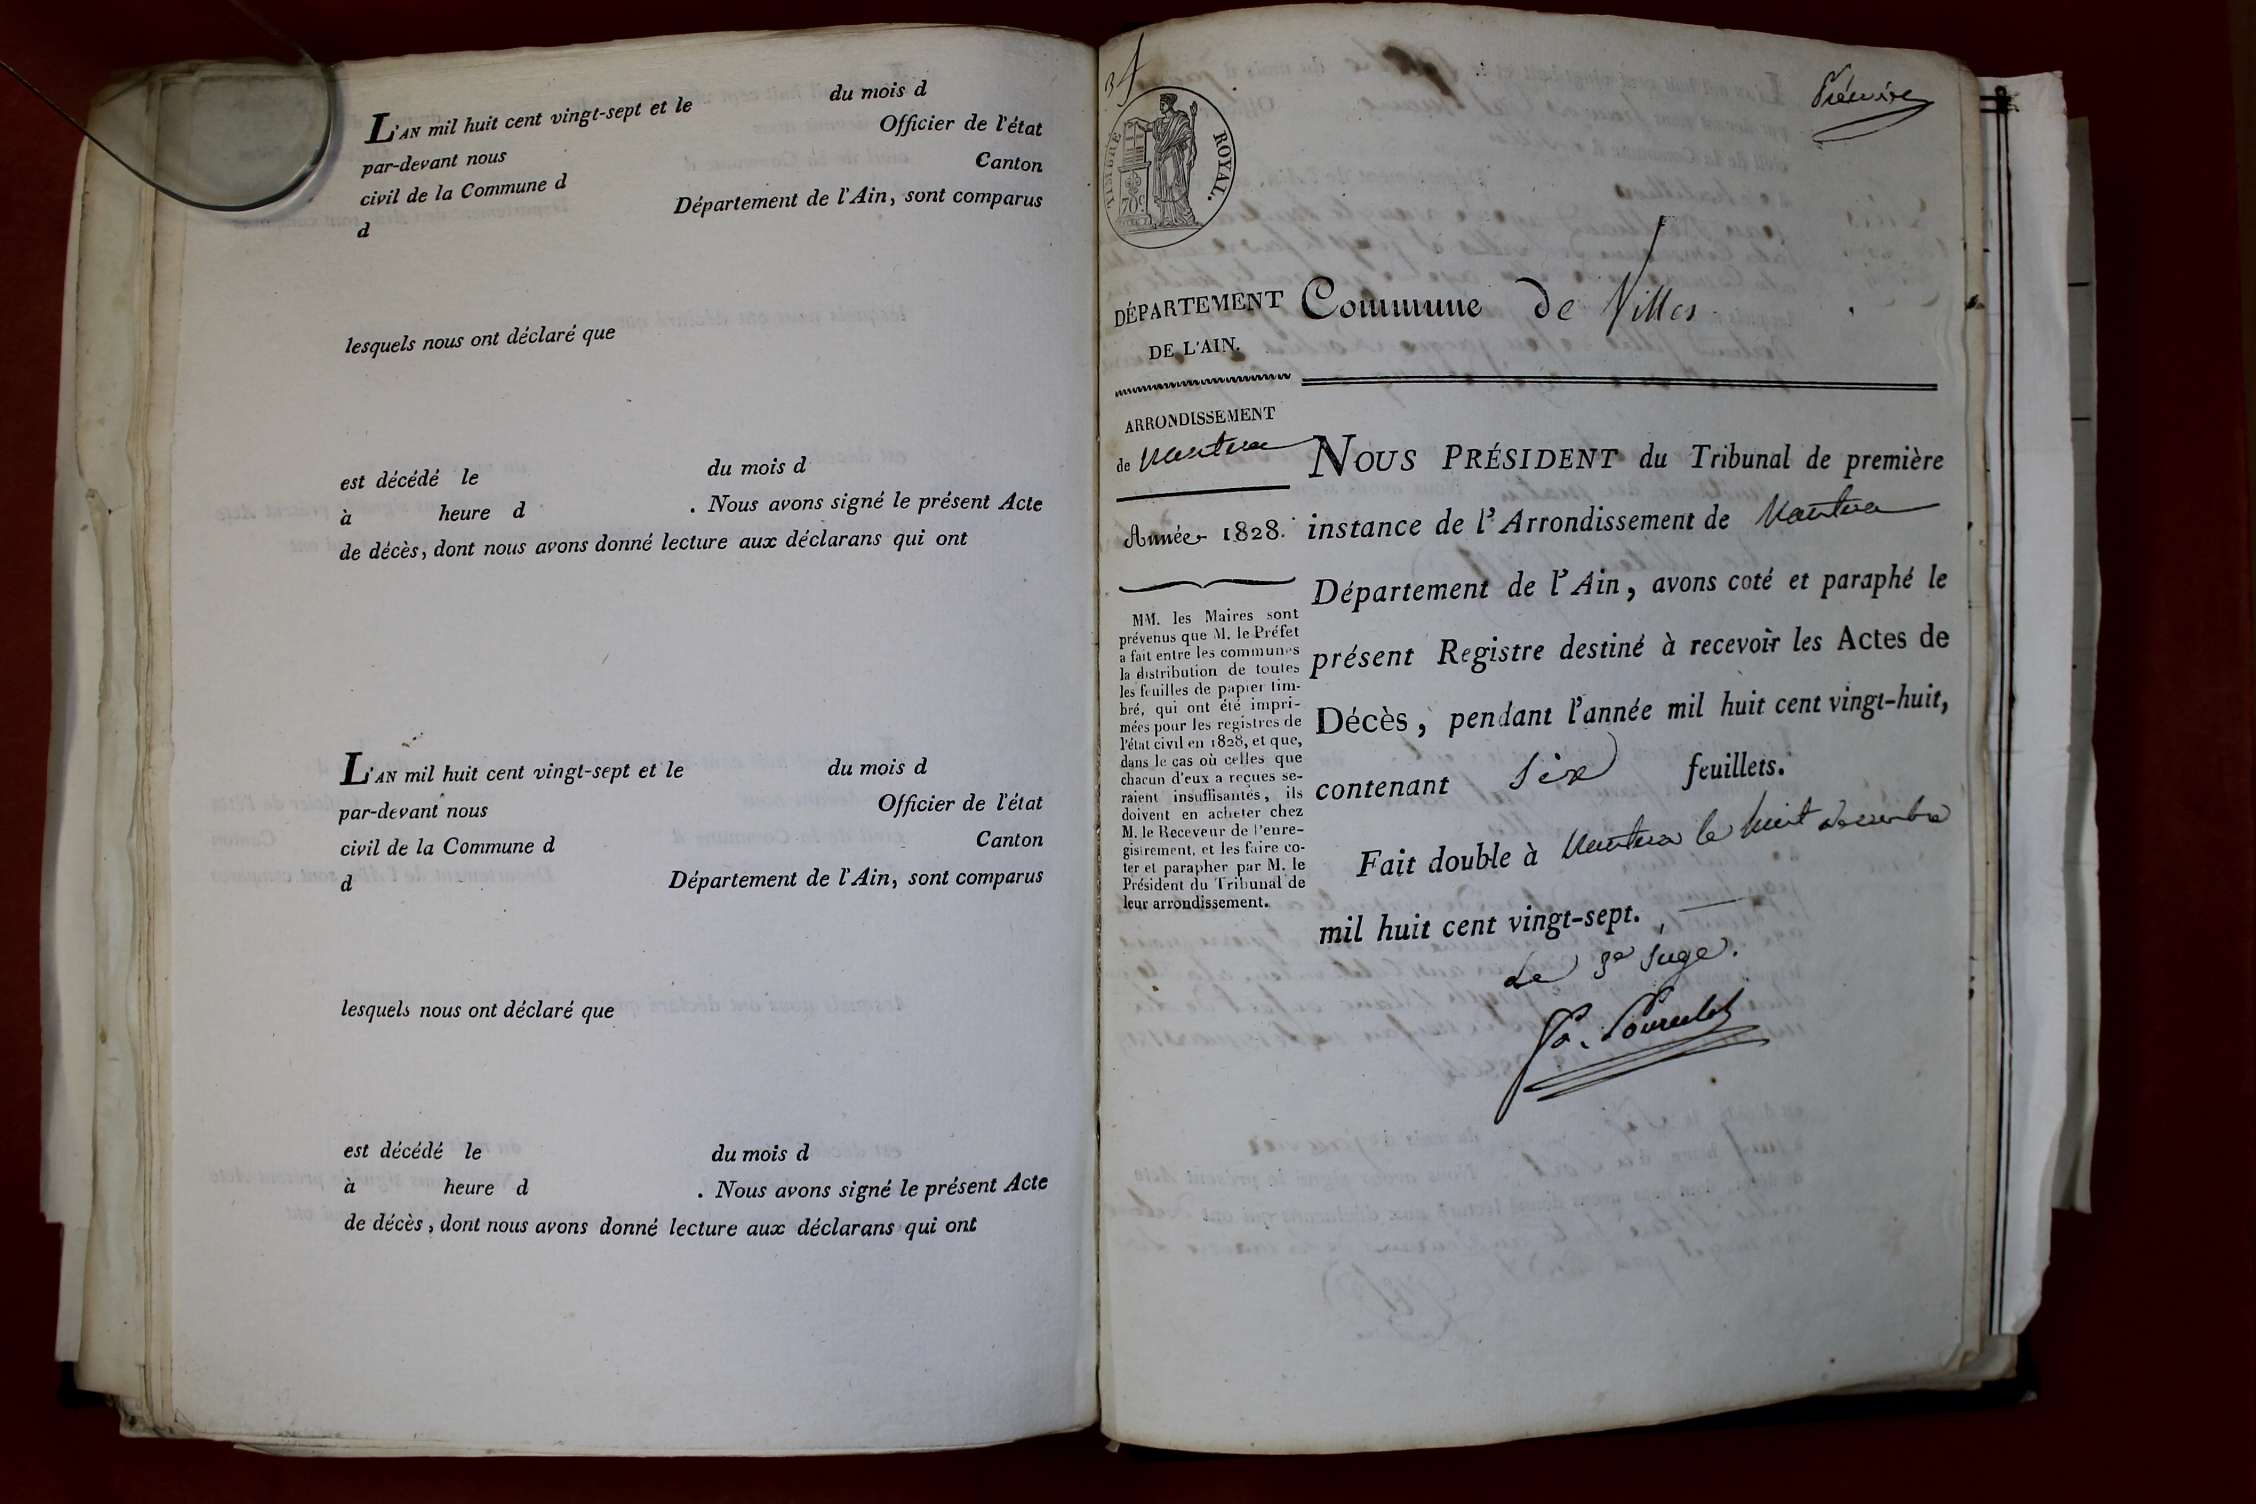 L'AN mil huit cent vingt-sept et le du mois d
par-devant nous Officier de l'état
civil de la Commune d Canton
d Département de l'Ain, sont comparus
lesquels nous ont déclaré que
est décédé le du mois d
à heure d . Nous avons signé le présent Acte
de décès, dont nous avons donné lecture aux déclarans qui ont
L'AN mil huit cent vingt-sept et le du mois d
par-devant nous Officier de l'état
civil de la Commune d Canton
d Département de l'Ain, sont comparus
lesquels nous ont déclaré que
est décédé le du mois d
à heure d . Nous avons signé le présent Acte
de décès, dont nous avons donné lecture aux déclarans qui ont
TIMBRE ROYAL.
70c
DÉPARTEMENT
DE L'AIN.
Commune de Villes
ARRONDISSEMENT
de Nantua
Année 1828.
MM. les Maires sont
prévenus que M. le Préfet
a fait entre les communes
la distribution de toutes
les feuilles de papier tim-
bré, qui ont été impri-
mées pour les registres de
l'état civil en 1828, et que,
dans le cas où celles que
chacun d'eux a reçues se-
raient insuffisantes, ils
doivent en acheter chez
M. le Receveur de l'enre-
gistrement, et les faire co-
ter et parapher par M. le
Président du Tribunal de
leur arrondissement.
NOUS PRÉSIDENT du Tribunal de première
instance de l'Arrondissement de Nantua
Département de l'Ain, avons coté et paraphé le
présent Registre destiné à recevoir les Actes de
Décès, pendant l'année mil huit cent vingt-huit,
contenant Six feuillets.
Fait double à Nantua le huit decembre
mil huit cent vingt-sept.
Le Juge.